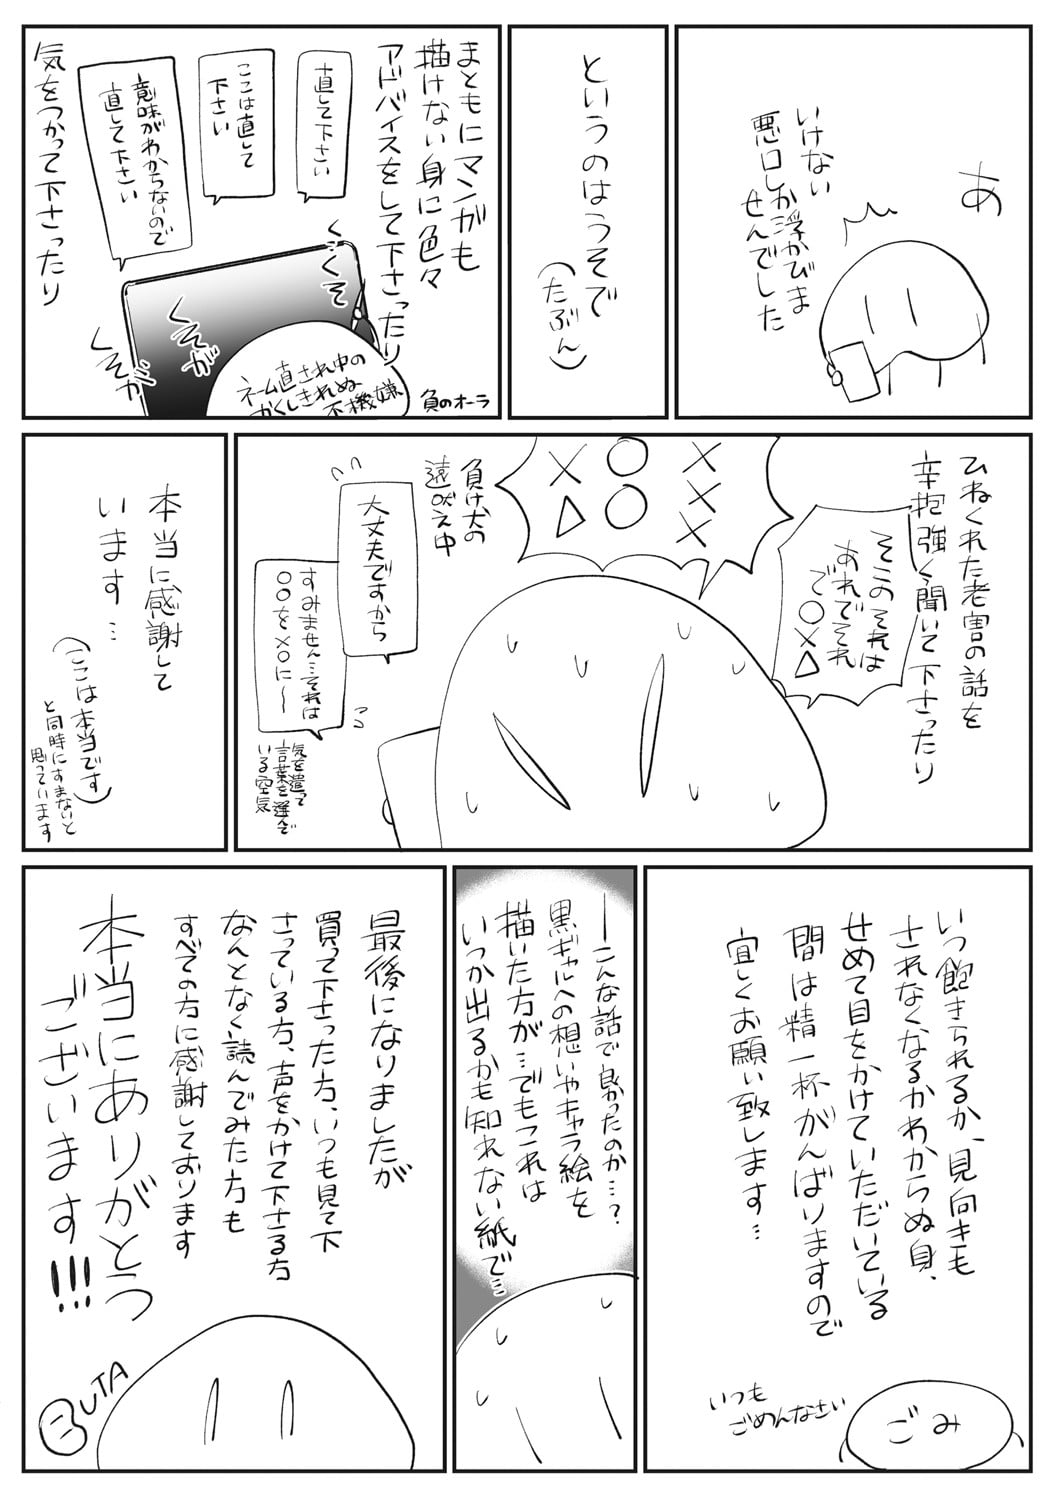 あ
いけない
悪口しか浮かびま
せんでした
というのはうそで
(たぶん)
まともにマンガも
描けない身に色々
アドバイスをして下さったり
直して下さい
ここは直して
下さい
意味がわからないので
直して下さい
気をつかって下さったり
くそ
くそが
くそが
ネーム直され中の
かくしきれぬ
不機嫌
負のオーラ
ひねくれた老害の話を
辛抱強く聞いて下さったり
そこのそれは
あれでそれ
で〇✕△
✕✕✕
〇〇
✕△
負け犬の
遠吠え中
大丈夫ですから
すみません…それは
〇〇を✕〇に〜
気を遣って
言葉を選んで
いる空気
本当に感謝して
います…
(ここは本当です)
と同時にすまないと
思っています
いつ飽きられるか、見向きも
されなくなるかわからぬ身、
せめて目をかけていただいている
間は精一杯がんばりますので
宜しくお願い致します…
ごみ
いつも
ごめんなさい
―こんな話で良かったのか…?
黒ギャルへの想いやキャラ絵を
描いた方が…でもこれは
いつか出るかも知れない紙で…
最後になりましたが
買って下さった方、いつも見て下
さっている方、声をかけて下さる方
なんとなく読んでみた方も
すべての方に感謝しております
本当にありがとう
ございます!!!
BUTA